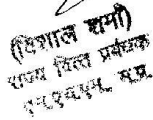 (विशाल शर्मा)
राज्य वित्त प्रबंधक
एन.एच.एम. म.प्र.